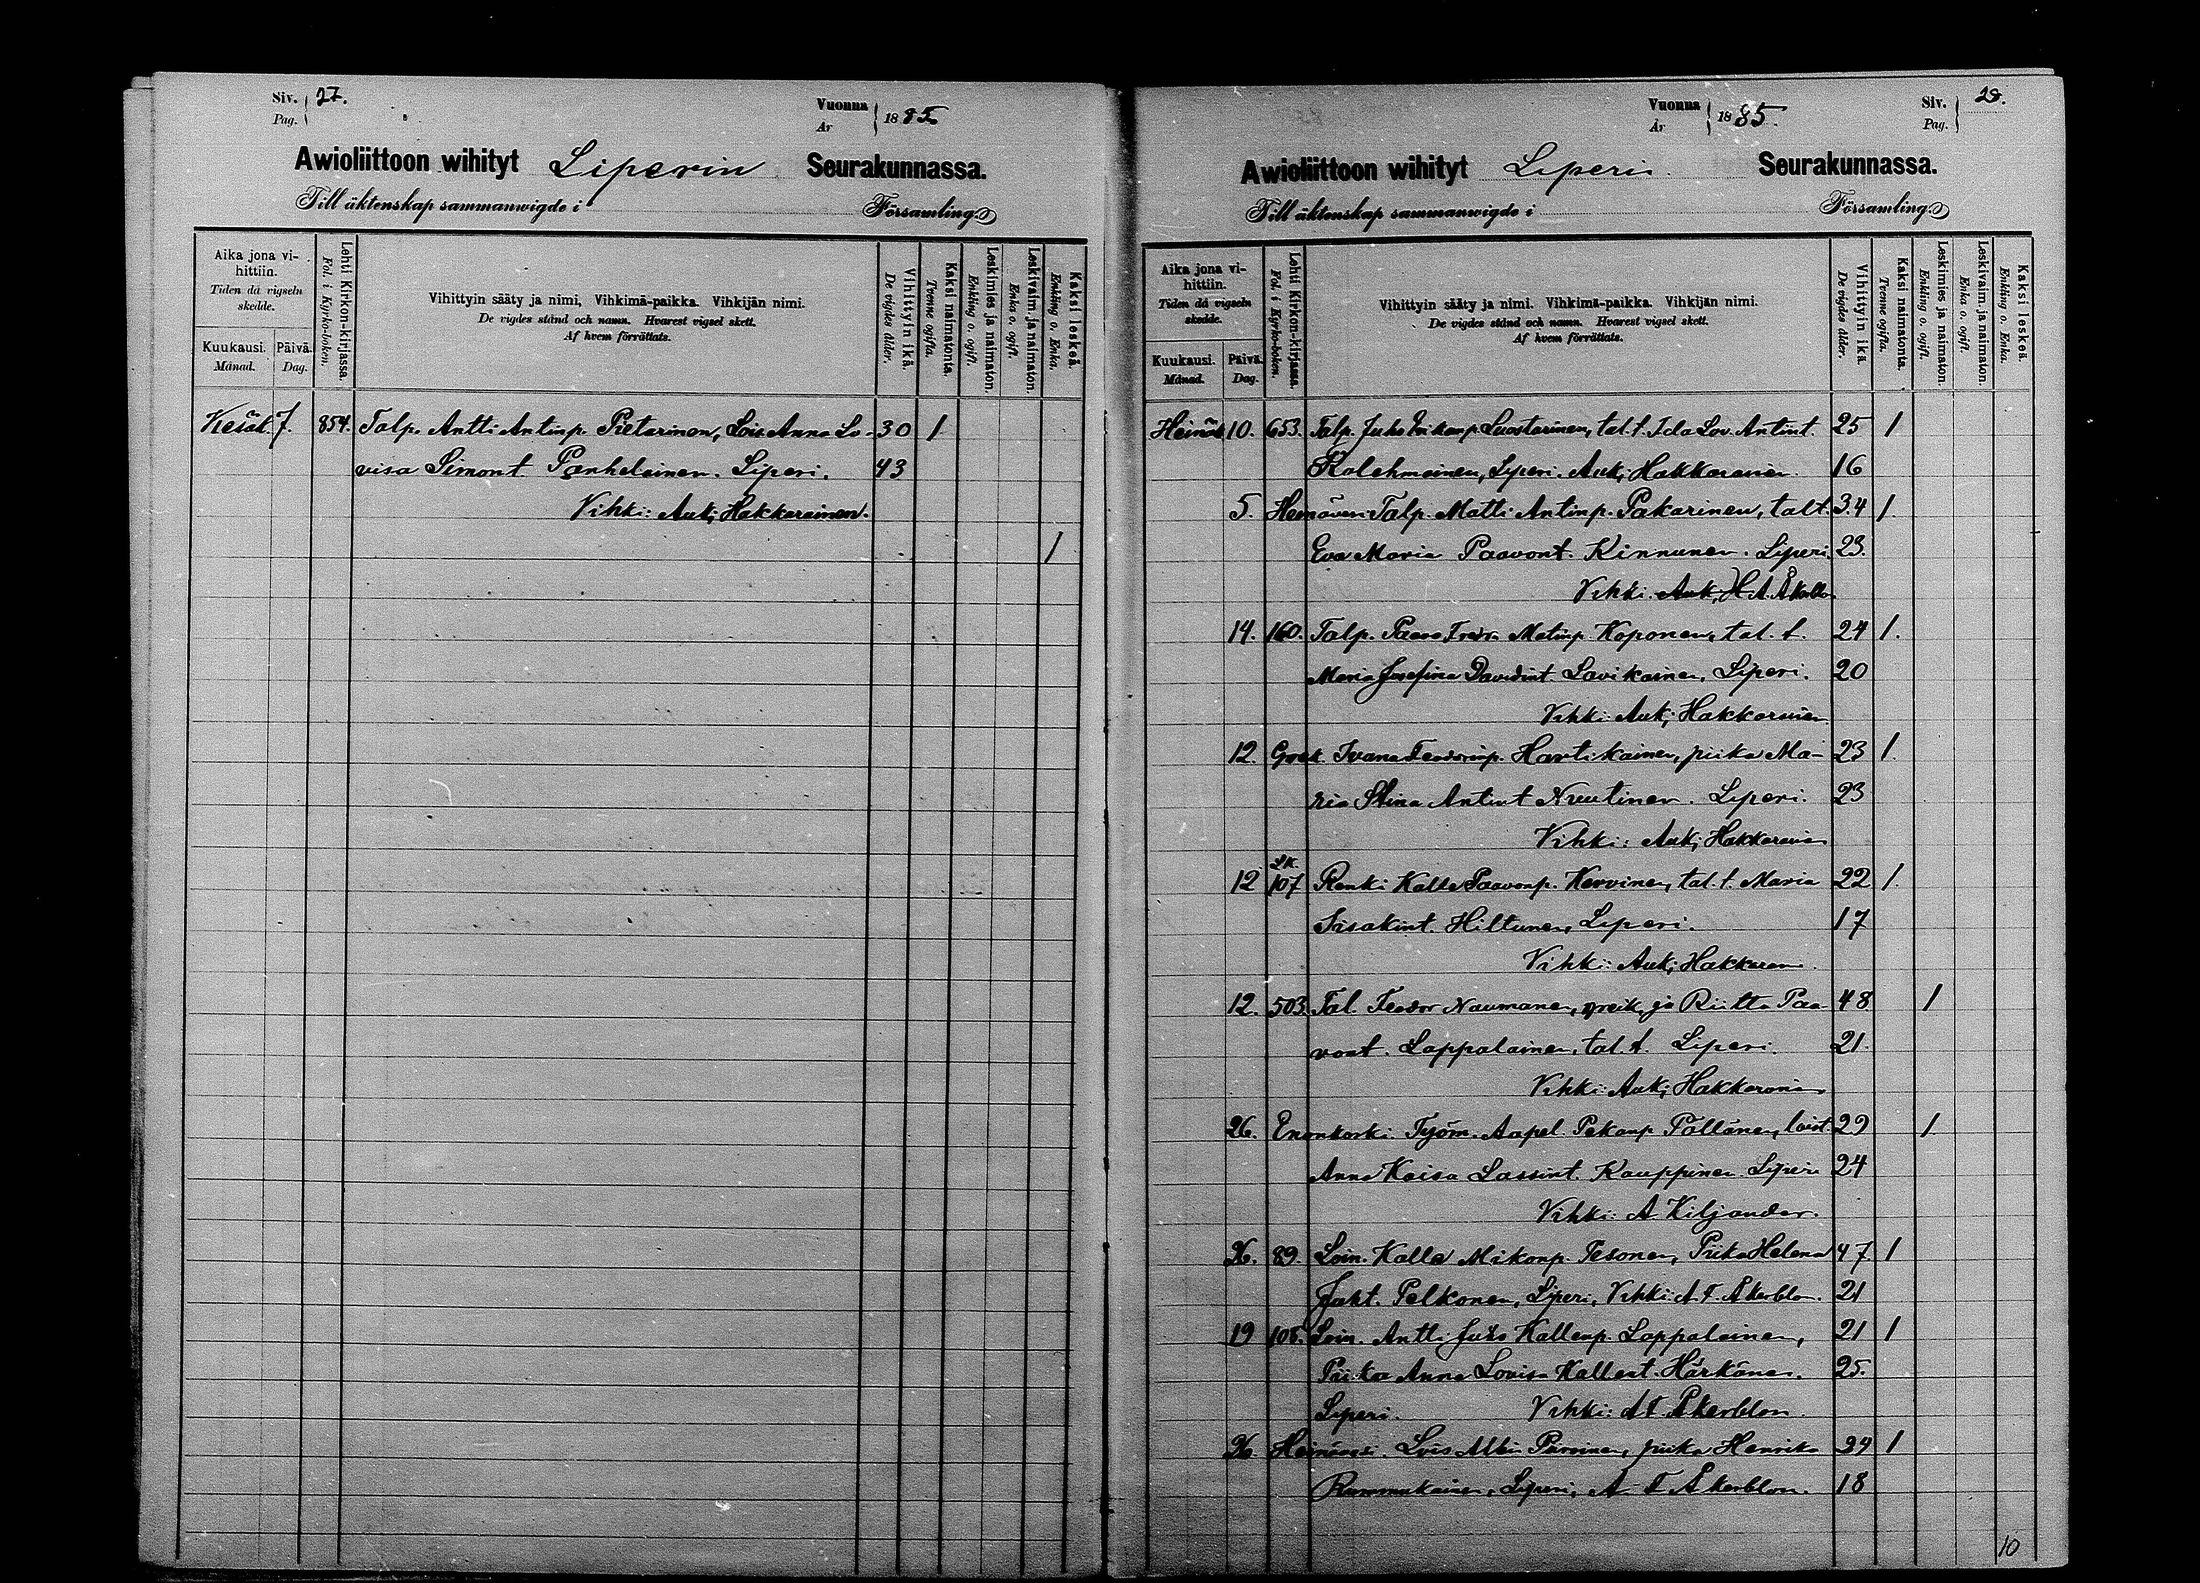 Siv. Pag. 27. Vuonna År 1885.
Awioliittoon wihityt Liperin Seurakunnassa.
Till äktenskap sammanwigde i Församling.
Aika jona vihittiin. Tiden då vigseln skedde.
Kuukausi. Månad. Päivä. Dag.
Lehti Kirkon-kirjassa. Fol. i Kyrko-boken.
Vihittyin sääty ja nimi, Vihkimä-paikka. Vihkijän nimi.
De vigdes stånd och namn. Hvarest vigsel skett.
Af hvem förrättats.
Vihittyin ikä. De vigdes ålder.
Kaksi naimatonta. Tvenne ogifta.
Leskimies ja naimaton. Enkling o. ogift.
Leskivaim. ja naimaton. Enka o. ogift.
Kaksi leskeä. Enkling o. Enka.
Kesäk. 7. 854. Talp. Antti Antinp. Pietarinen, Lois Anna Lo- 30 1
visa Simont Panhelainen. Liperi. 43
Vihki: Auk; Hakkarainen.
1
Vuonna År 1885. Siv. Pag. 28.
Awioliittoon wihityt Liperi Seurakunnassa.
Till äktenskap sammanwigde i Församling.
Aika jona vihittiin. Tiden då vigseln skedde.
Kuukausi. Månad. Päivä. Dag.
Lehti Kirkon-kirjassa. Fol. i Kyrko-boken.
Vihittyin sääty ja nimi. Vihkimä-paikka. Vihkijän nimi.
De vigdes stånd och namn. Hvarest vigsel skett.
Af hvem förrättats.
Vihittyin ikä. De vigdes ålder.
Kaksi naimatonta. Tvenne ogifta.
Leskimies ja naimaton. Enkling o. ogift.
Leskivaim. ja naimaton. Enka o. ogift.
Kaksi leskeä. Enkling o. Enka.
Heinäk 10. 653. Talp. Juho Luostarinen, tal. t. Ida Lov. Antint. 25 1
Rolehmainen, Liperi. Auk; Hakkarainen. 16
5. Heinävesi Talp. Matti Antinp. Pakarinen, tal t. 34 1.
Eva Maria Paavont. Kinnunen. Liperi. 23.
Vihki. Auk, H. A. Åkerblo
14. 160. Talp. Paavo Matinp. Koponen, tal. t. 24 1.
Maria Josefina Davidint Lavikainen, Liperi. 20
Vihki: Auk; Hakkarainen
12. Greek. Ivana Feodorinp. Hartikainen, piika Ma- 23 1.
ria Stina Antint Nuutinen. Liperi. 23
Vihki: Auk; Hakkarainen
12 LK. 107 Renki Kalle Paavonp. Kervinen, tal. t. Maria 22 1.
Iisakint. Hiltunen, Liperi. 17
Vihki: Auk; Hakkaren
12. 503. Tal. Feodor Naumanen, greik, ja Riitta Paa- 48 1
vont. Lappalainen, tal. t. Liperi. 21.
Vihki: Auk; Hakkarainen
26. Enonkoski. Työm. Aapel Pekanp Pöllänen, loist. 29 1
Anna Kaisa Lassint. Kauppinen Liperi 24
Vihki: A Kiljander.
26. 89. Loin. Kalle Mikonp. Pesonen, Piika Helena 47 1
Juht. Pelkonen, Liperi, Vihki: A. F. Åkerblom. 21
19 105. Loin. Antti Juho Kallenp. Lappalainen, 21 1
Piika Anna Lovisa Kallent. Härkönen. 25.
Liperi. Vihki: A F. Åkerblom.
26. Heinävesi. Lois Albin Parvinen, piika Henrika 24 1
Rummukainen, Liperi, A F Åkerblom. 18
10